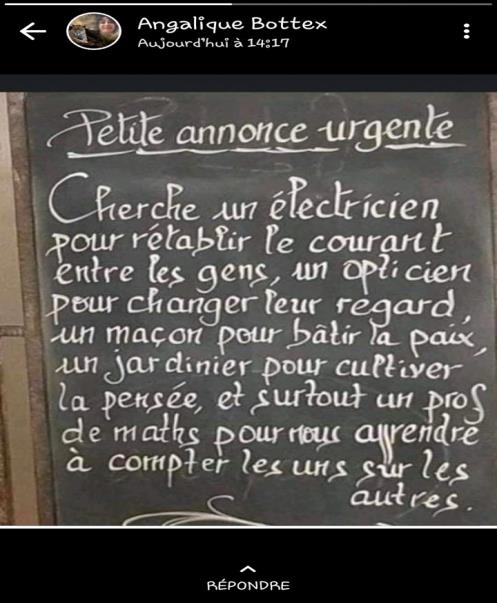 Angalique Bottex
Aujourd'hui à 14:17
Petite annonce urgente
Cherche un électricien
pour rétablir le courant
entre les gens, un opticien
pour changer leur regard,
un maçon pour bâtir la paix,
un jardinier pour cultiver
la pensée, et surtout un prof
de maths pour nous apprendre
à compter les uns sur les
autres.
RÉPONDRE